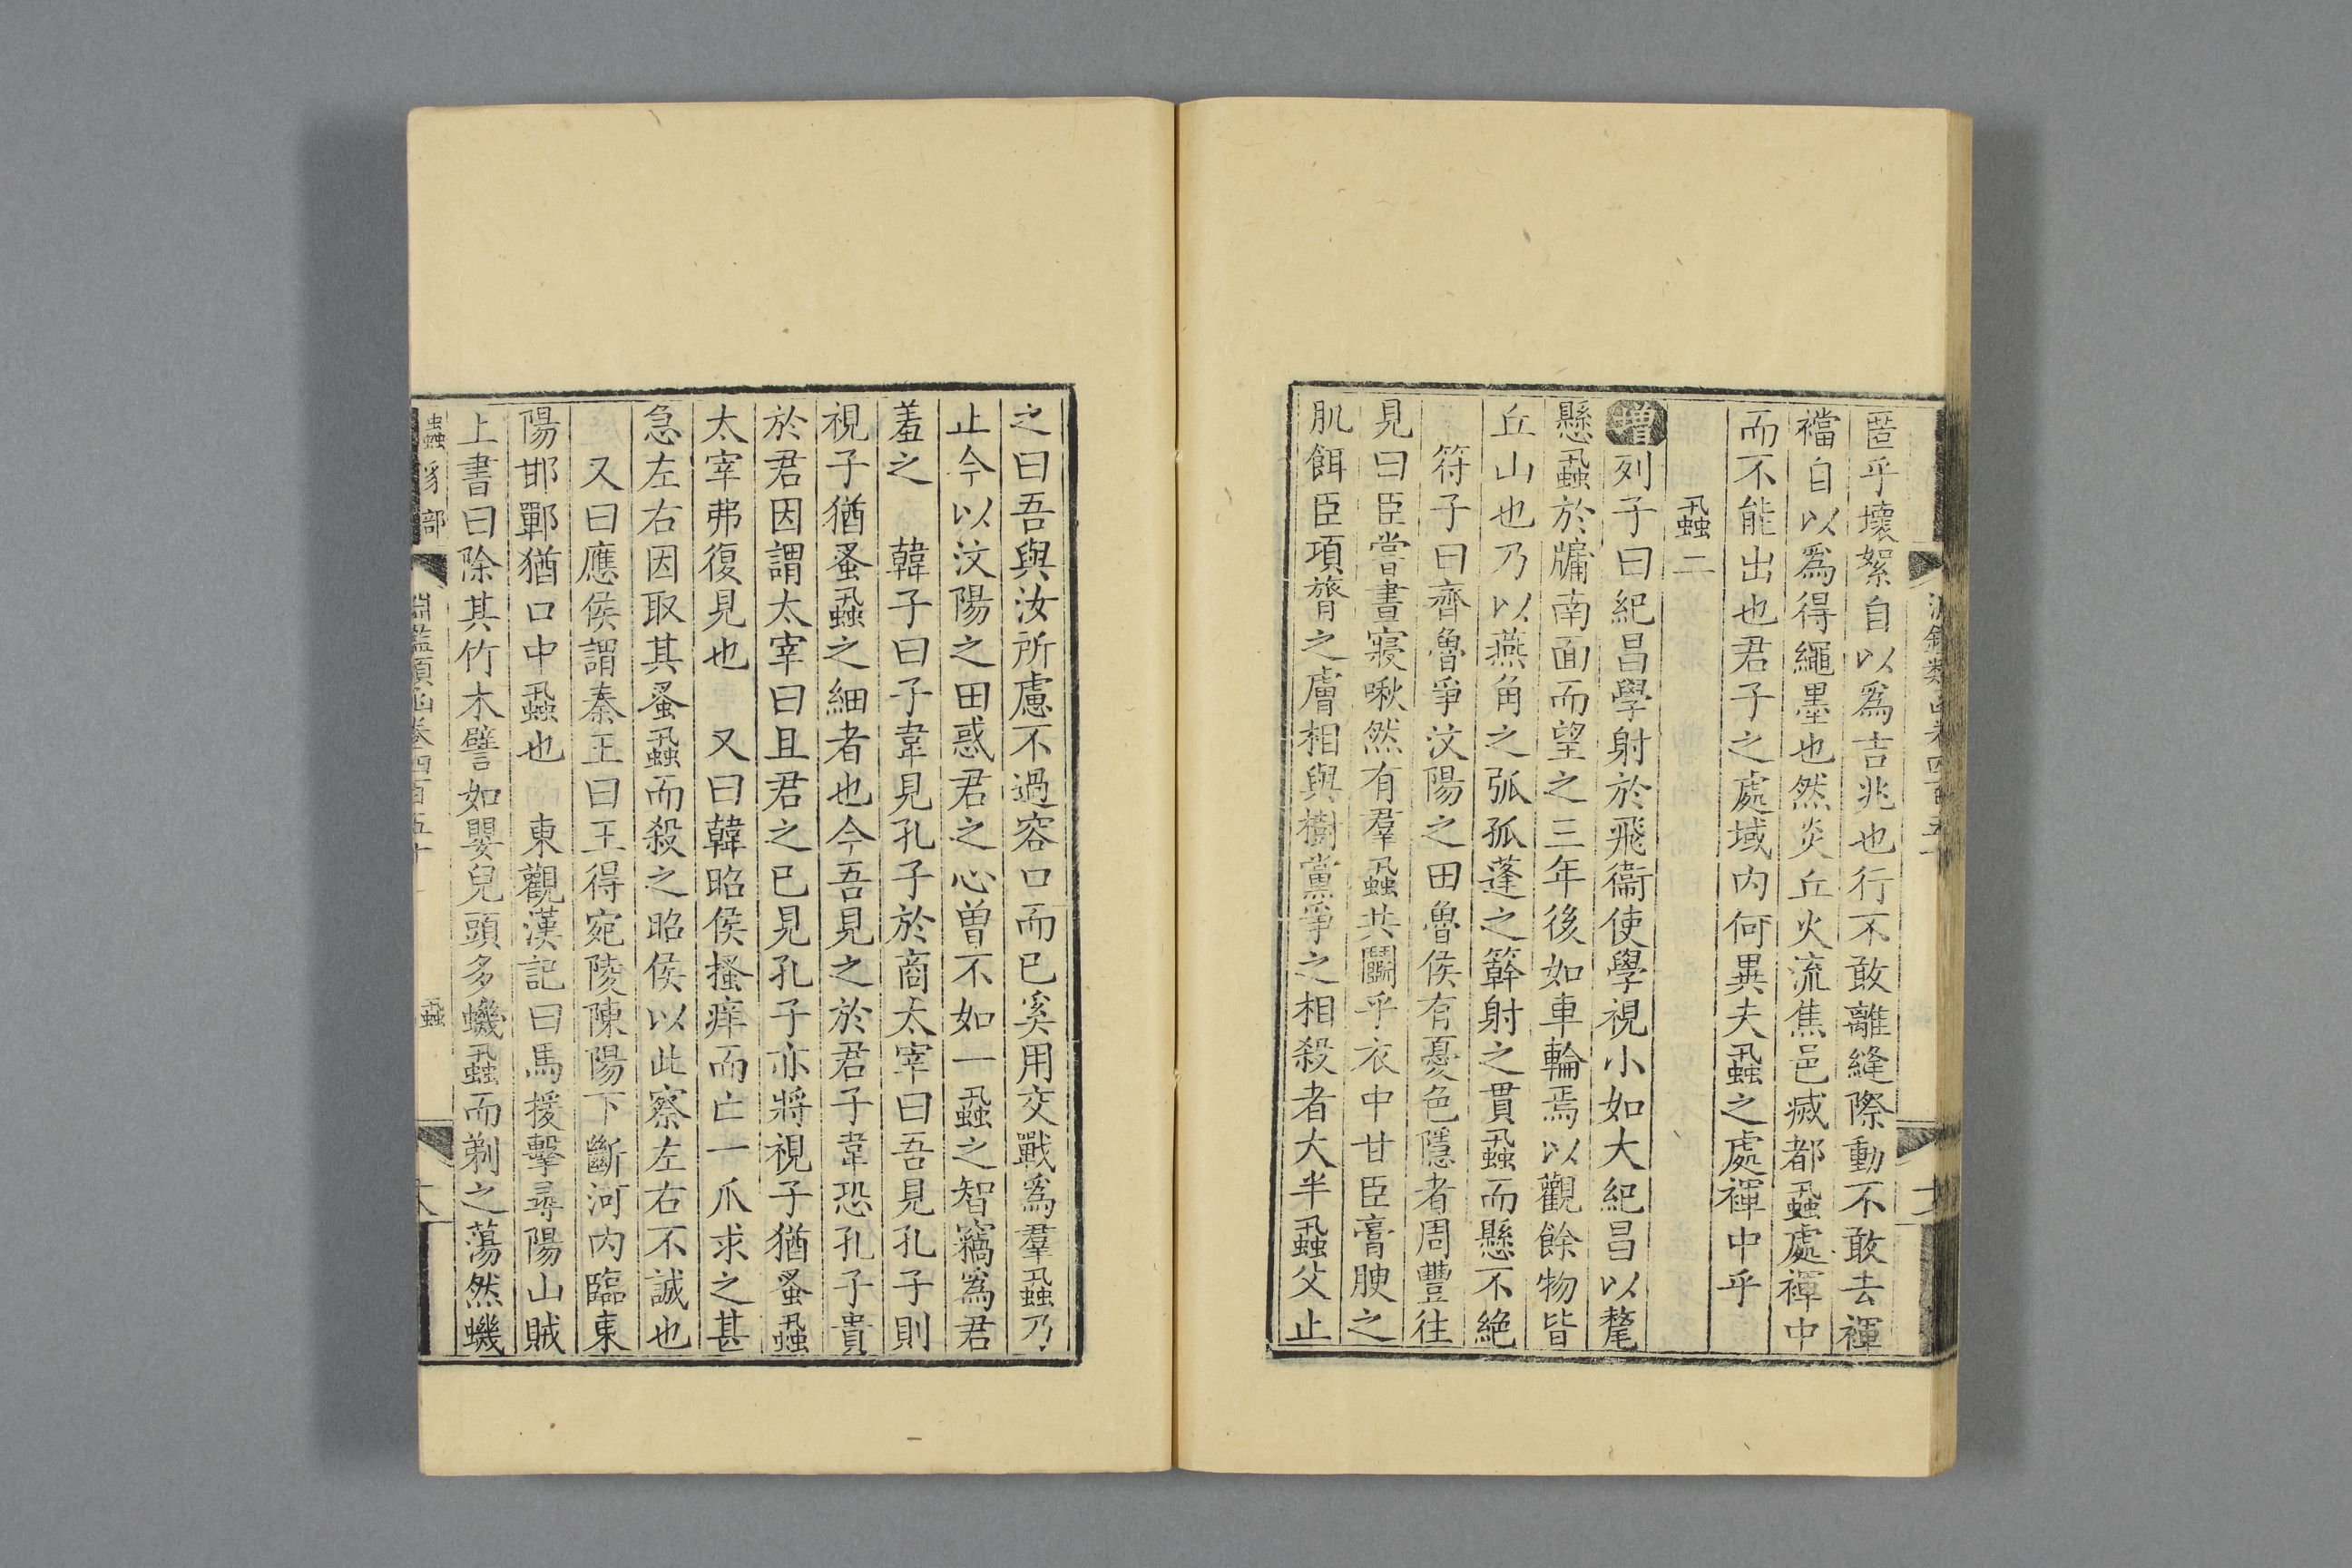 匿乎壞絮自以爲吉兆也行不敢離縫際動不敢去褌
襠自以爲得繩墨也然炎丘火流焦邑滅都蝨處褌中
而不能出也君子之處域内何異夫蝨之處褌中乎
蝨二
增列子曰紀昌學射於飛衞使學視小如大紀昌以氂
懸蝨於牖南面而望之三年後如車輪焉以觀餘物皆
丘山也乃以燕角之弧孤蓬之簳射之貫蝨而懸不絶
符子曰齊魯爭汶陽之田魯侯有憂色隱者周豐往
見曰臣嘗晝寢啾然有羣蝨共鬭乎衣中甘臣膏腴之
肌餌臣項膂之膚相與樹黨爭之相殺者大半蝨父止
之曰吾與汝所慮不過容口而已奚用交戰爲羣蝨乃
止今以汶陽之田惑君之心曽不如一蝨之智竊爲君
羞之 韓子曰子韋見孔子於商太宰曰吾見孔子則
視子猶蚤蝨之細者也今吾見之於君子韋恐孔子貴
於君因謂太宰曰且君之已見孔子亦將視子猶蚤蝨
太宰弗復見也 又曰韓昭侯搔痒而亡一爪求之甚
急左右因取其蚤蝨而殺之昭侯以此察左右不誠也
又曰應侯謂秦王曰王得宛陵陳陽下斷河内臨東
陽邯鄲猶口中蝨也 東觀漢記曰馬援擊尋陽山賊
上書曰除其竹木譬如嬰兒頭多蟣蝨而剃之蕩然蟣
蟲豸部
淵鑑類函卷四百五十
蝨